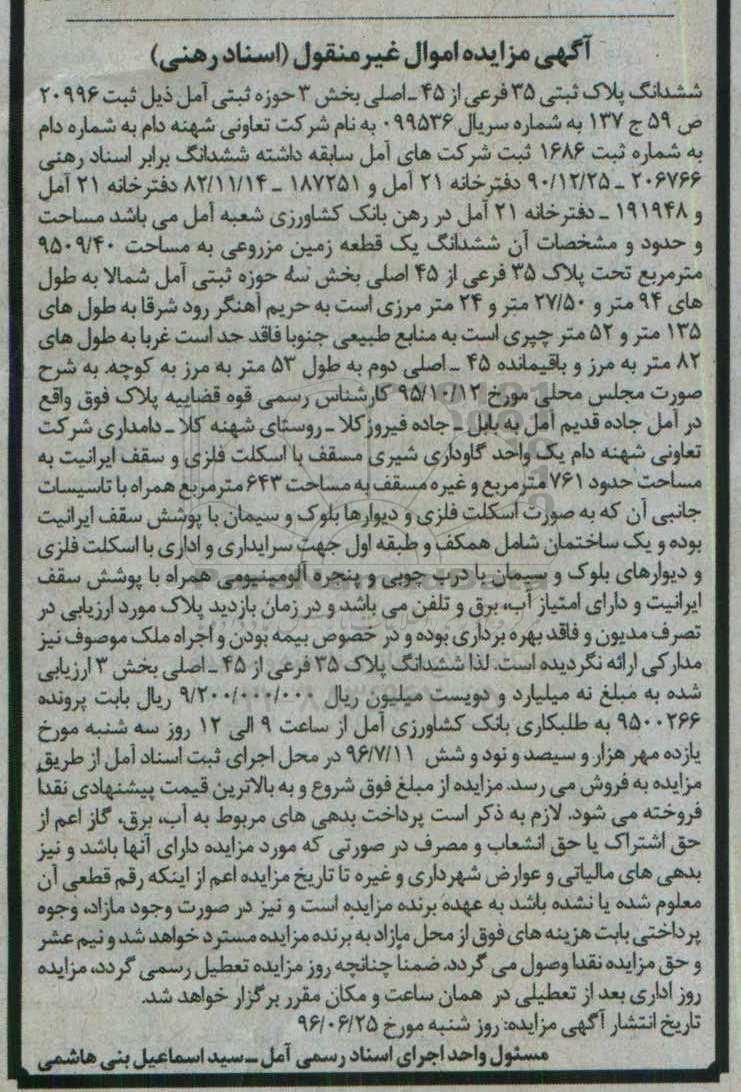 آگهی مزایده اموال غیرمنقول (اسناد رهنی)
ششدانگ پلاک ثبتی ۳۵ فرعی از ۴۵ ـ اصلی بخش ۳ حوزه ثبتی آمل ذیل ثبت ۲۰۹۹۶
ص ۵۹ ج ۱۳۷ به شماره سریال ۰۹۹۵۳۶ به نام شرکت تعاونی شهنه دام به شماره دام
به شماره ثبت ۱۶۸۶ ثبت شرکت های آمل سابقه داشته ششدانگ برابر اسناد رهنی
۲۰۶۷۶۶ ـ ۹۰/۱۲/۲۵ دفترخانه ۲۱ آمل و ۱۸۷۲۵۱ ـ ۸۲/۱۱/۱۴ دفترخانه ۲۱ آمل
و ۱۹۱۹۴۸ ـ دفترخانه ۲۱ آمل در رهن بانک کشاورزی شعبه آمل می باشد مساحت
و حدود و مشخصات آن ششدانگ یک قطعه زمین مزروعی به مساحت ۹۵۰۹/۴۰
مترمربع تحت پلاک ۳۵ فرعی از ۴۵ اصلی بخش سه حوزه ثبتی آمل شمالا به طول
های ۹۴ متر و ۲۷/۵۰ متر و ۲۴ متر مرزی است به حریم آهنگر رود شرقا به طول های
۱۳۵ متر و ۵۲ متر چپری است به منابع طبیعی جنوبا فاقد حد است غربا به طول های
۸۲ متر به مرز و باقیمانده ۴۵ ـ اصلی دوم به طول ۵۳ متر به مرز به کوچه. به شرح
صورت مجلس محلی مورخ ۹۵/۱۰/۱۲ کارشناس رسمی قوه قضاییه پلاک فوق واقع
در آمل جاده قدیم آمل به بابل ـ جاده فیروزکلا ـ روستای شهنه کلا ـ دامداری شرکت
تعاونی شهنه دام یک واحد گاوداری شیری مسقف با اسکلت فلزی و سقف ایرانیت به
مساحت حدود ۷۶۱ مترمربع و غیره مسقف به مساحت ۶۴۳ مترمربع همراه با تاسیسات
جانبی آن که به صورت اسکلت فلزی و دیوارها بلوک و سیمان با پوشش سقف ایرانیت
بوده و یک ساختمان شامل همکف و طبقه اول جهت سرایداری و اداری با اسکلت فلزی
و دیوارهای بلوک و سیمان با درب چوبی و پنجره آلومینیومی همراه با پوشش سقف
ایرانیت و دارای امتیاز آب، برق و تلفن می باشد و در زمان بازدید پلاک مورد ارزیابی در
تصرف مدیون و فاقد بهره برداری بوده و در خصوص بیمه بودن و اجراه ملک موصوف نیز
مدارکی ارائه نگردیده است. لذا ششدانگ پلاک ۳۵ فرعی از ۴۵ ـ اصلی بخش ۳ ارزیابی
شده به مبلغ نه میلیارد و دویست میلیون ریال ۹/۲۰۰/۰۰۰/۰۰۰ ریال بابت پرونده
۹۵۰۰۲۶۶ به طلبکاری بانک کشاورزی آمل از ساعت ۹ الی ۱۲ روز سه شنبه مورخ
یازده مهر هزار و سیصد و نود و شش ۹۶/۷/۱۱ در محل اجرای ثبت اسناد آمل از طریق
مزایده به فروش می رسد. مزایده از مبلغ فوق شروع و به بالاترین قیمت پیشنهادی نقداً
فروخته می شود. لازم به ذکر است پرداخت بدهی های مربوط به آب، برق، گاز اعم از
حق اشتراک یا حق انشعاب و مصرف در صورتی که مورد مزایده دارای آنها باشد و نیز
بدهی های مالیاتی و عوارض شهرداری و غیره تا تاریخ مزایده اعم از اینکه رقم قطعی آن
معلوم شده یا نشده باشد به عهده برنده مزایده است و نیز در صورت وجود مازاد، وجوه
پرداختی بابت هزینه های فوق از محل مازاد به برنده مزایده مسترد خواهد شد و نیم عشر
و حق مزایده نقدا وصول می گردد. ضمناً چنانچه روز مزایده تعطیل رسمی گردد، مزایده
روز اداری بعد از تعطیلی در همان ساعت و مکان مقرر برگزار خواهد شد.
تاریخ انتشار آگهی مزایده: روز شنبه مورخ ۹۶/۰۶/۲۵
مسئول واحد اجرای اسناد رسمی آمل ـ سید اسماعیل بنی هاشمی